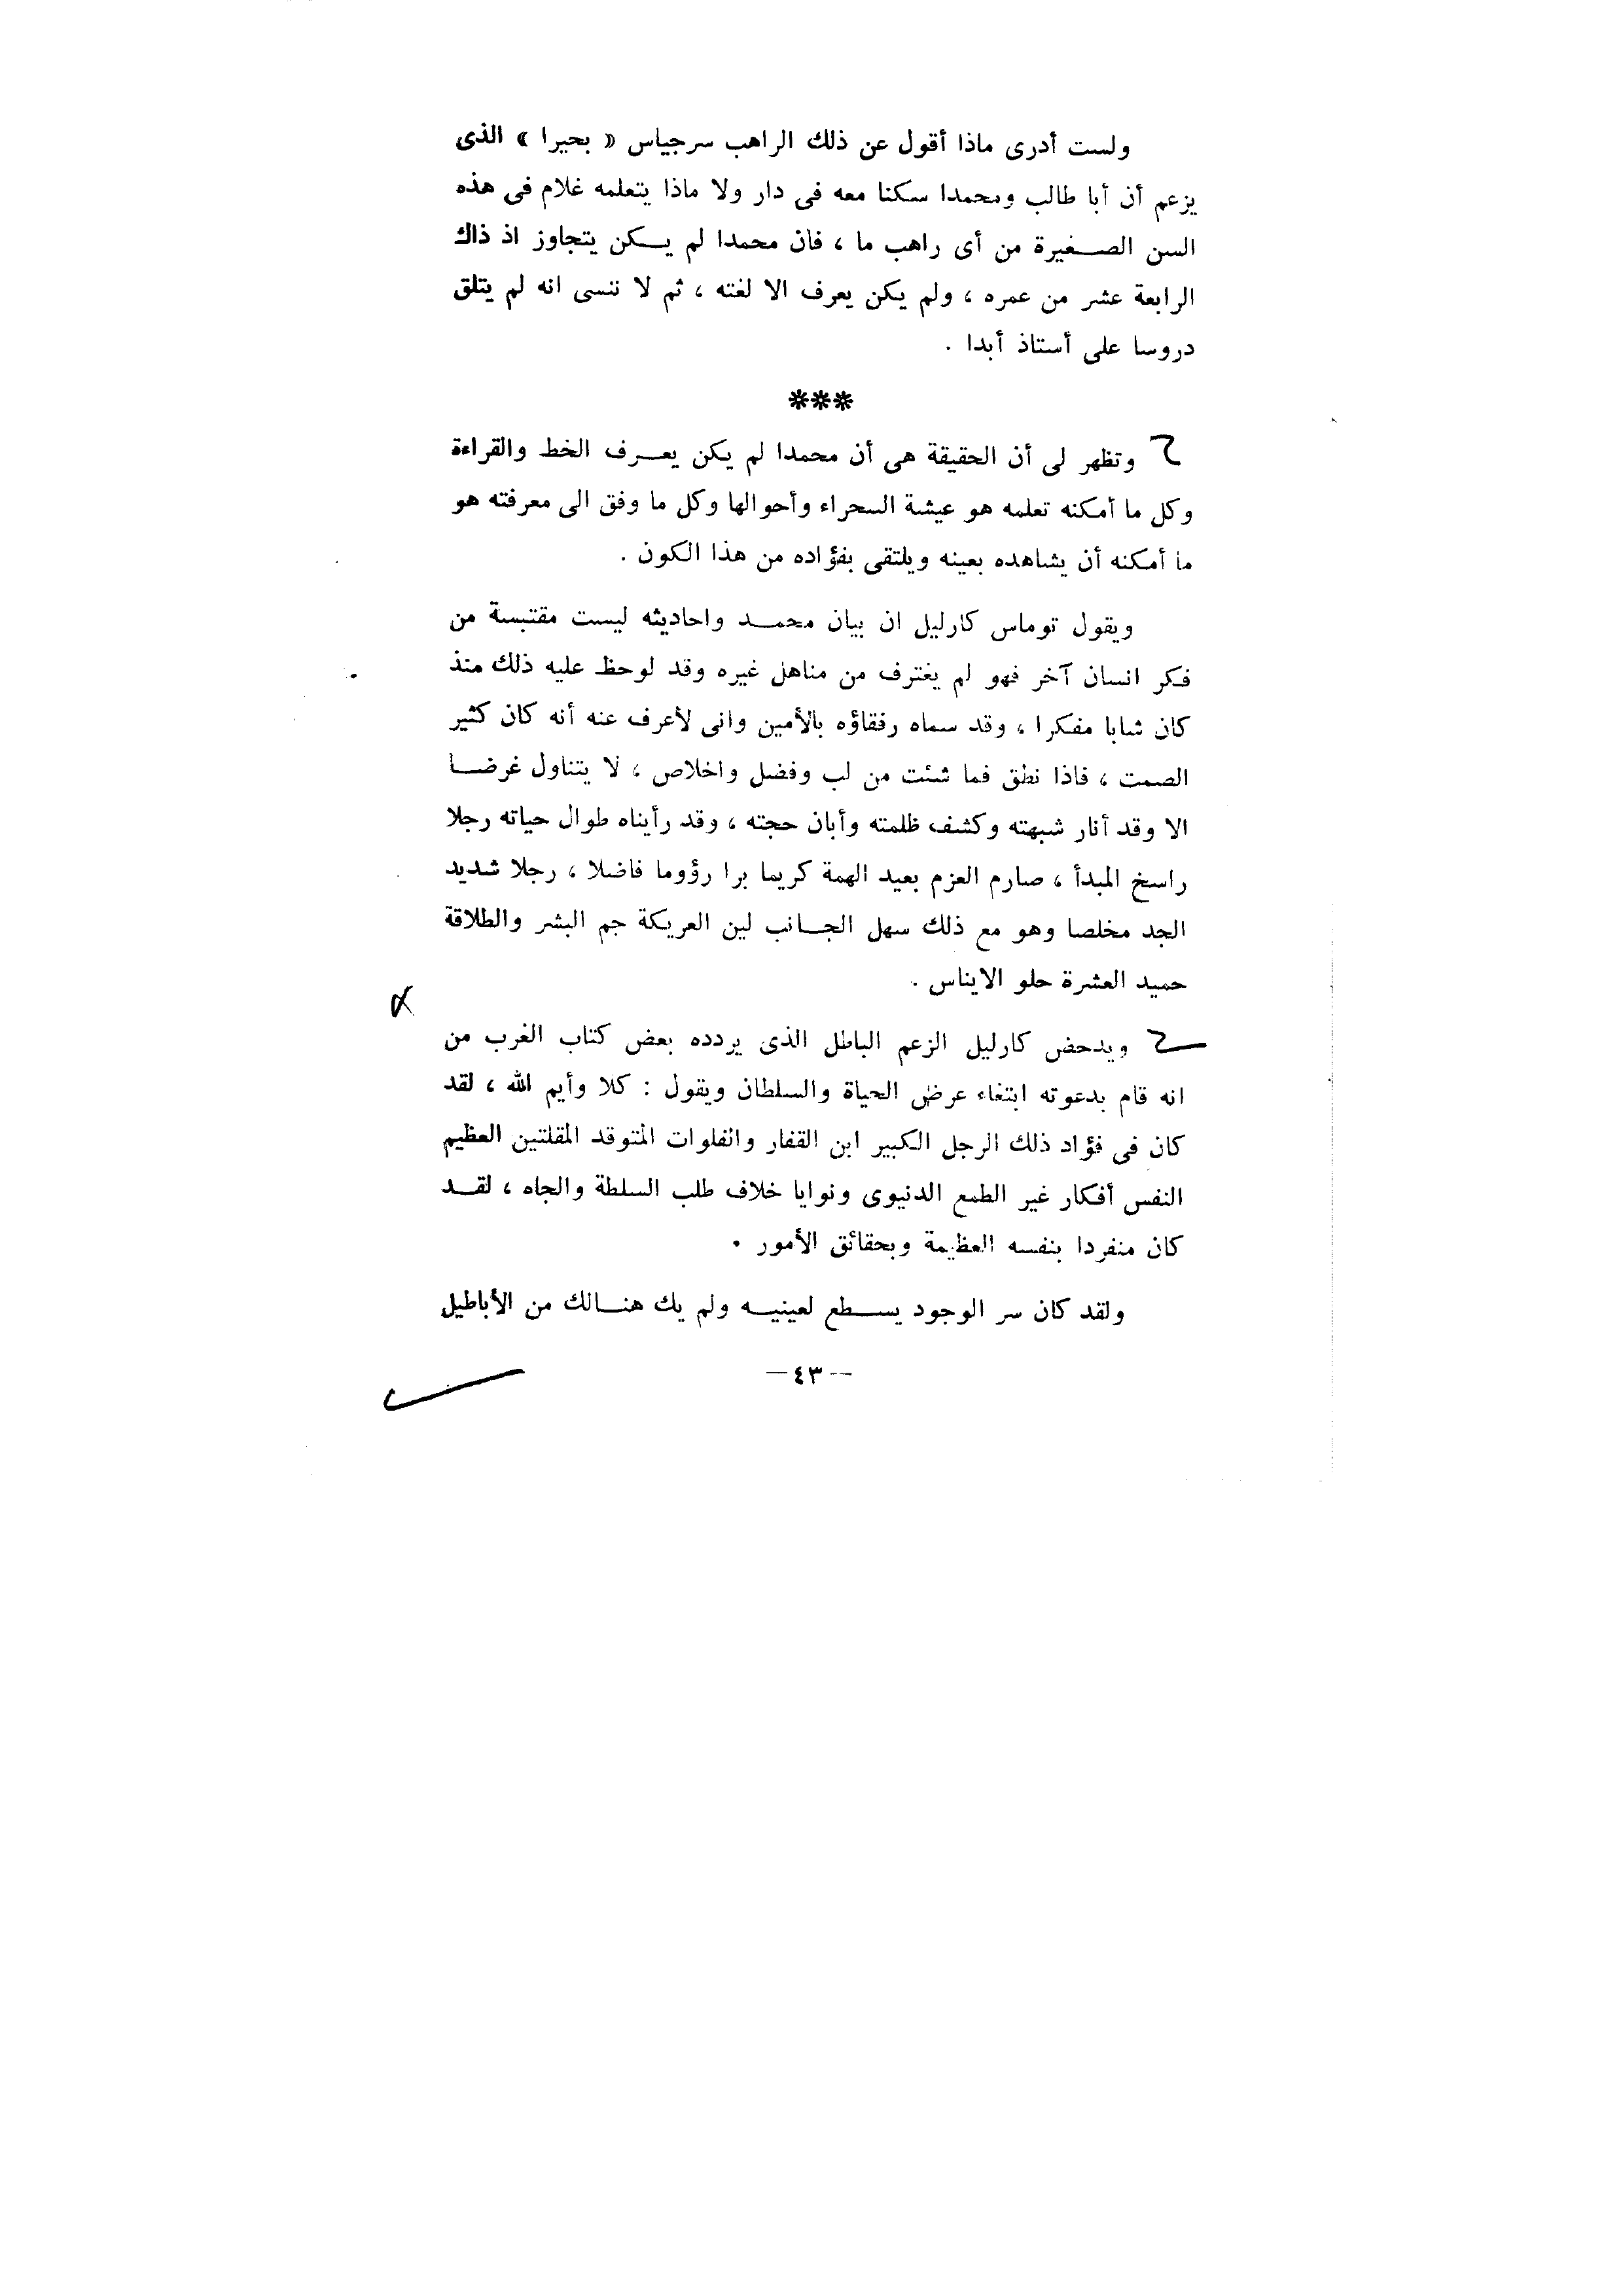 ولست أدرى ماذا أقول عن ذلك الراهب سرجياس « بحيرا » الذى
يزعم أن أبا طالب ومحمدا سكنا معه فى دار ولا ماذا يتعلمه غلام فى هذه
السن الصغيرة من أى راهب ما ، فان محمدا لم يكن يتجاوز اذ ذاك
الرابعة عشر من عمره ، ولم يكن يعرف الا لغته ، ثم لا ننسى انه لم يتلق
دروسا على أستاذ أبدا .
***
وتظهر لى أن الحقيقة هى أن محمدا لم يكن يعرف الخط والقراءة
وكل ما أمكنه تعلمه هو عيشة السحراء وأحوالها وكل ما وفق الى معرفته هو
ما أمكنه أن يشاهده بعينه ويلتقى بفؤاده من هذا الكون .
ويقول توماس كارليل ان بيان محمد واحاديثه ليست مقتبسة من
فكر انسان آخر فهو لم يغترف من مناهل غيره وقد لوحظ عليه ذلك منذ
كان شابا مفكرا ، وقد سماه رفقاؤه بالأمين وانى لأعرف عنه أنه كان كثير
الصمت ، فاذا نطق فما شئت من لب وفضل واخلاص ، لا يتناول غرضا
الا وقد أنار شبهته وكشف ظلمته وأبان حجته ، وقد رأيناه طوال حياته رجلا
راسخ المبدأ ، صارم العزم بعيد الهمة كريما برا رؤوما فاضلا ، رجلا شديد
الجد مخلصا وهو مع ذلك سهل الجانب لين العريكة جم البشر والطلاقة
حميد العشرة حلو الايناس .
ويدحض كارليل الزعم الباطل الذى يردده بعض كتاب الغرب من
انه قام بدعوته ابتغاء عرض الحياة والسلطان ويقول : كلا وأيم الله ، لقد
كان فى فؤاد ذلك الرجل الكبير ابن القفار والفلوات المتوقد المقلتين العظيم
النفس أفكار غير الطمع الدنيوى ونوايا خلاف طلب السلطة والجاه ، لقد
كان منفردا بنفسه العظيمة وبحقائق الأمور .
ولقد كان سر الوجود يسطع لعينيه ولم يك هنالك من الأباطيل
— ٤٣ —